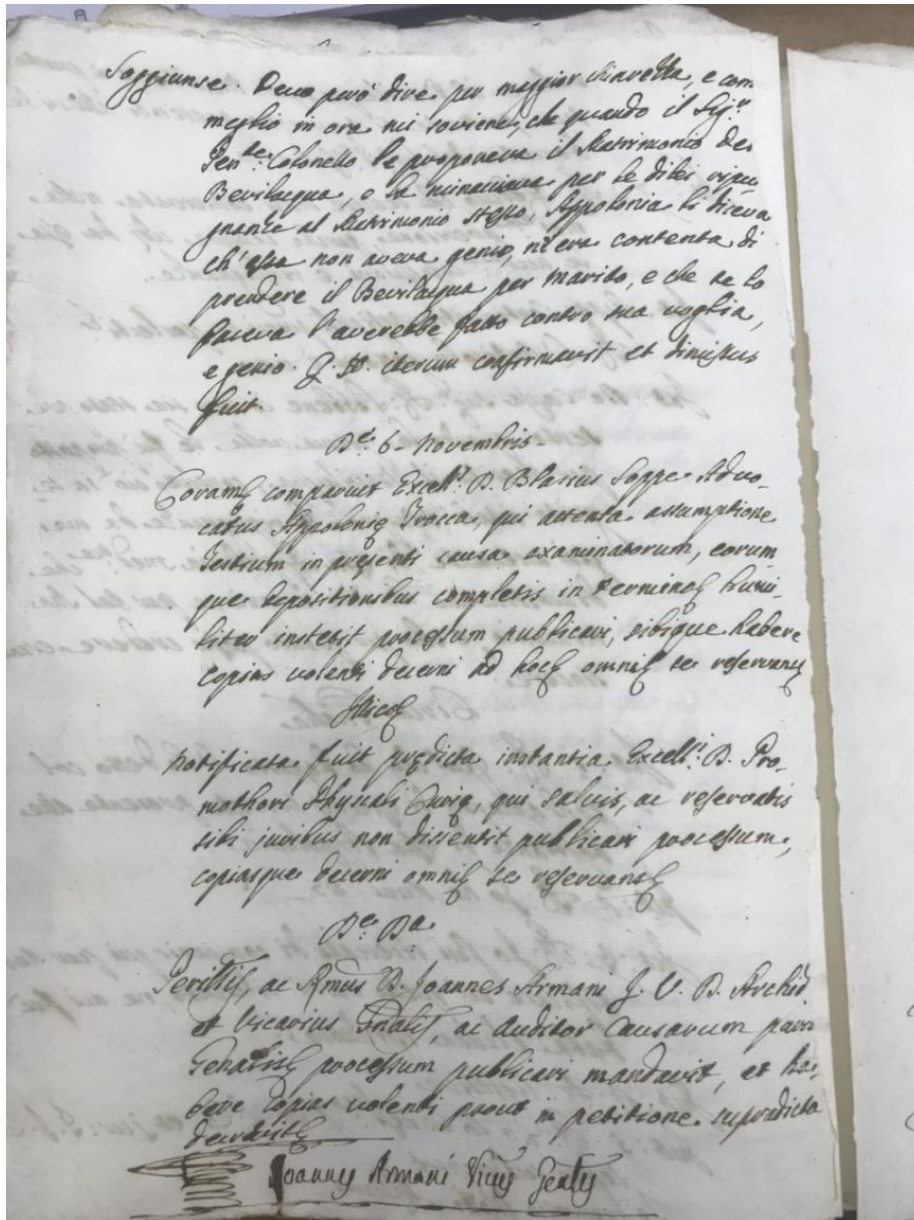 Soggiunse. Devo però dire per maggior chiarezza, e com
meglio in ora mi soviene, che quando il Sig.r
Ten.te Colonello le proponeva il Matrimonio del
Bevilacqua, e la minacciava per le dilei ripu
gnanze al Matrimonio stesso, Appolonia li diceva
ch'essa non aveva genio, nè era contenta di
prendere il Bevilacqua per marito, e che se lo
faceva l'averebbe fatto contro sua voglia,
e genio. Q. iterum confirmavit et dimissus
fuit.
D.e 6. Novembris.
Coram comparuit Excell. D. Blasius Soppe Advo-
catus Appolonię Trocca, qui attenta assumptione
Testium in pręsenti causa examinatorum, eorum
que depositionibus completis in Termine humi-
liter instetit processum publicari, sibique habere
copias volenti decerni ad hoc omni se reservans
Illico
Notificata fuit prędicta instantia Excell.i D. Pro-
mothori Physcali Curię, qui salvis, ac reservatis
sibi juribus non dissentit publicari processum,
copiasque decerni omni se reservans
D.e D.a
Perill, ac Rmus D. Joannes Armani J. V. D. Archid
et Vicarius Gnalis, ac Auditor Causarum
processum publicari mandavit, et ha-
bere copias volenti prout in petitione supradicta
decrevit
Joannes Armani Vicus Genlis